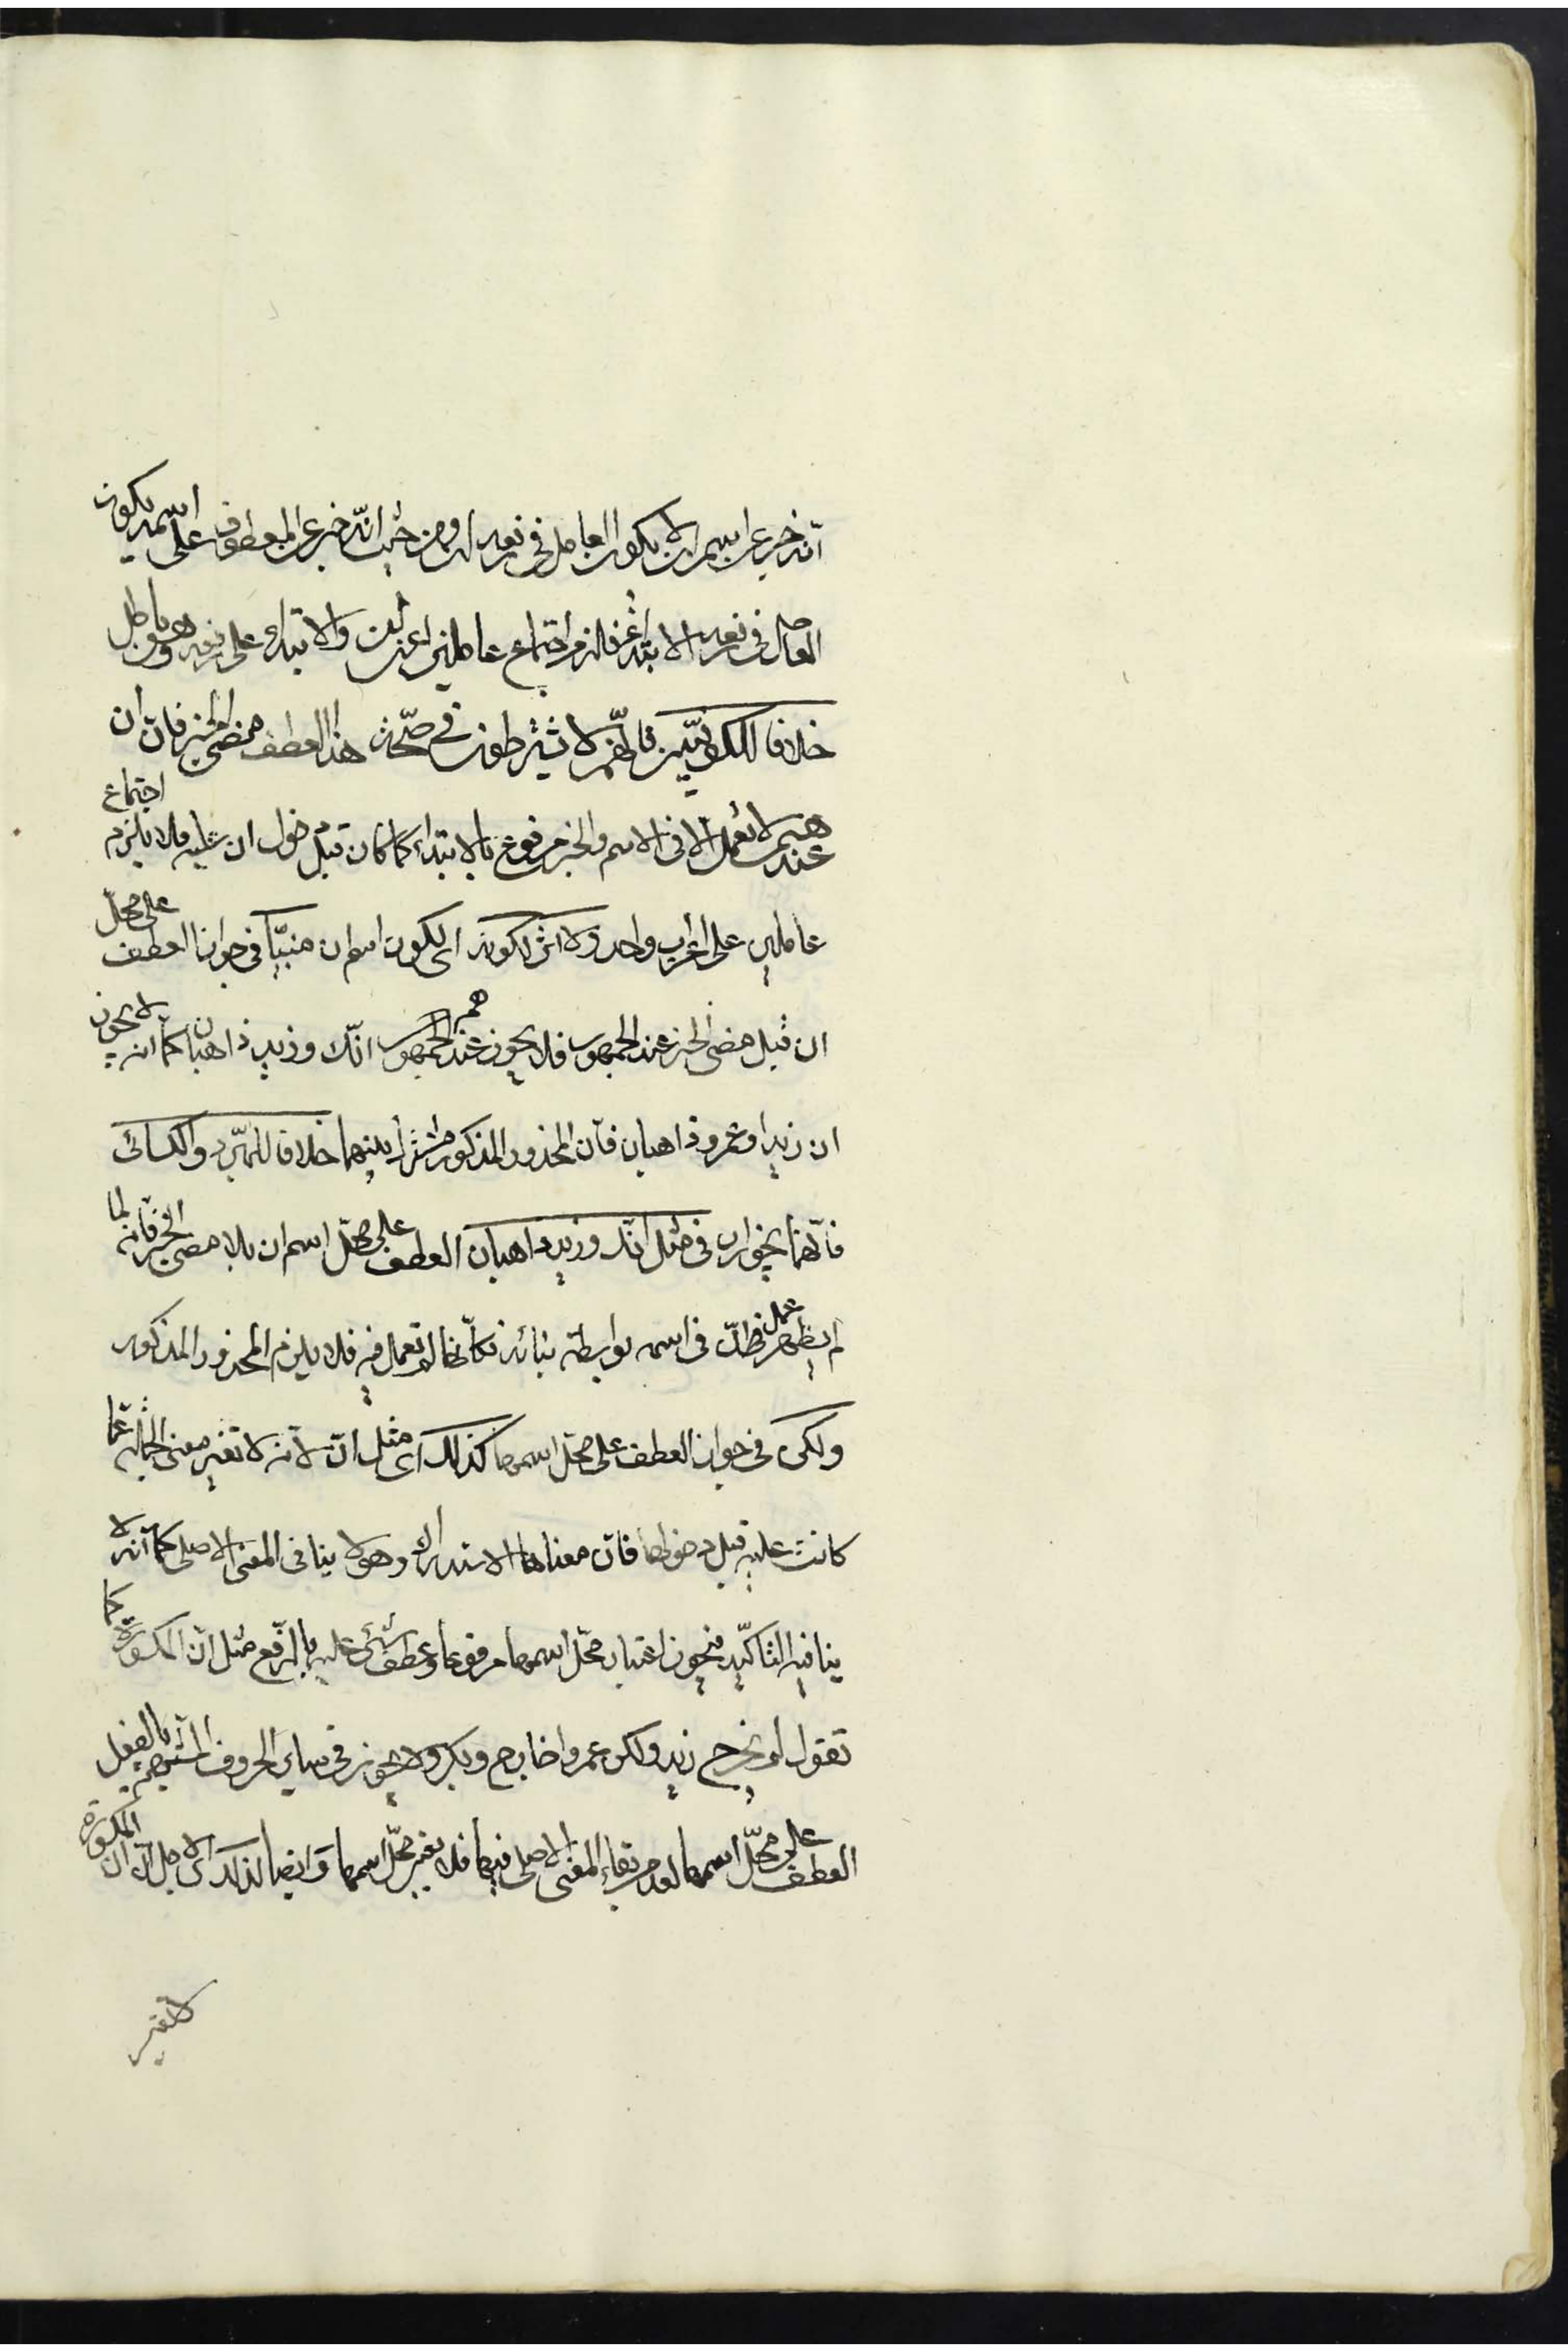 انه خبر عن اسم ان يكون العامل فى رفعه ان ومن حيث انه خبر عن المعطوف على اسمه يكون
العامل فى رفعه الابتداء فلزم اجتماع عاملين اعنى ان والابتداء على رفعه وهو باطل
خلافا للكوفيين فانهم لا يشترطون فى صحة هذا العطف مضى الخبر فان ان
عندهم لا تعمل الا فى الاسم والخبر مرفوع بالابتداء كما كان قبل دخول ان عليه فلا يلزم اجتماع
عاملين على اعراب واحد ولا اثر لكونه اى لكون اسم ان مبنيّا فى جواز العطف على محلّ
ان قبل مضى الخبر عند الجمهور فلا يجوز عند الجمهور هم انّك وزيد ذاهبان كما انه لا يجوز
ان زيدا وعمرو ذاهبان فان المحذور المذكور مشترك بينهما خلافا للمبرّد والكسائى
فانّهما يجوزان فى مثل انّك وزيد ذاهبان العطف على محلّ اسم ان بلا مضى الخبر فانه لما
لم يظهر عمل ان فى اسمه بواسطة بنائه فكأنّها لم تعمل فيه فلا يلزم المحذور المذكور
ولكن فى جواز العطف على محلّ اسمها كذلك اى مثل انّ لانه لا تغير معنى الجملة عما
كانت عليه قبل دخولها فان معناها الاستدراك وهو لا ينافى المعنى الاصلى كما انه لا
ينافيه التأكيد فيجوز اعتبار محلّ اسمها مرفوعا وعطف شئ عليه بالرفع مثل انّ المكسورة كما
تقول لم يخرج زيد ولكن عمروا خارج وبكر ولا يجوز فى سائر الحروف المشبهة بالفعل
العطف على محلّ اسمها لعدم بقاء المعنى الاصلى فيها فلا يعتبر محلّ اسمها وايضا لذلك اى لاجل انّ ان المكسورة
لا تغير